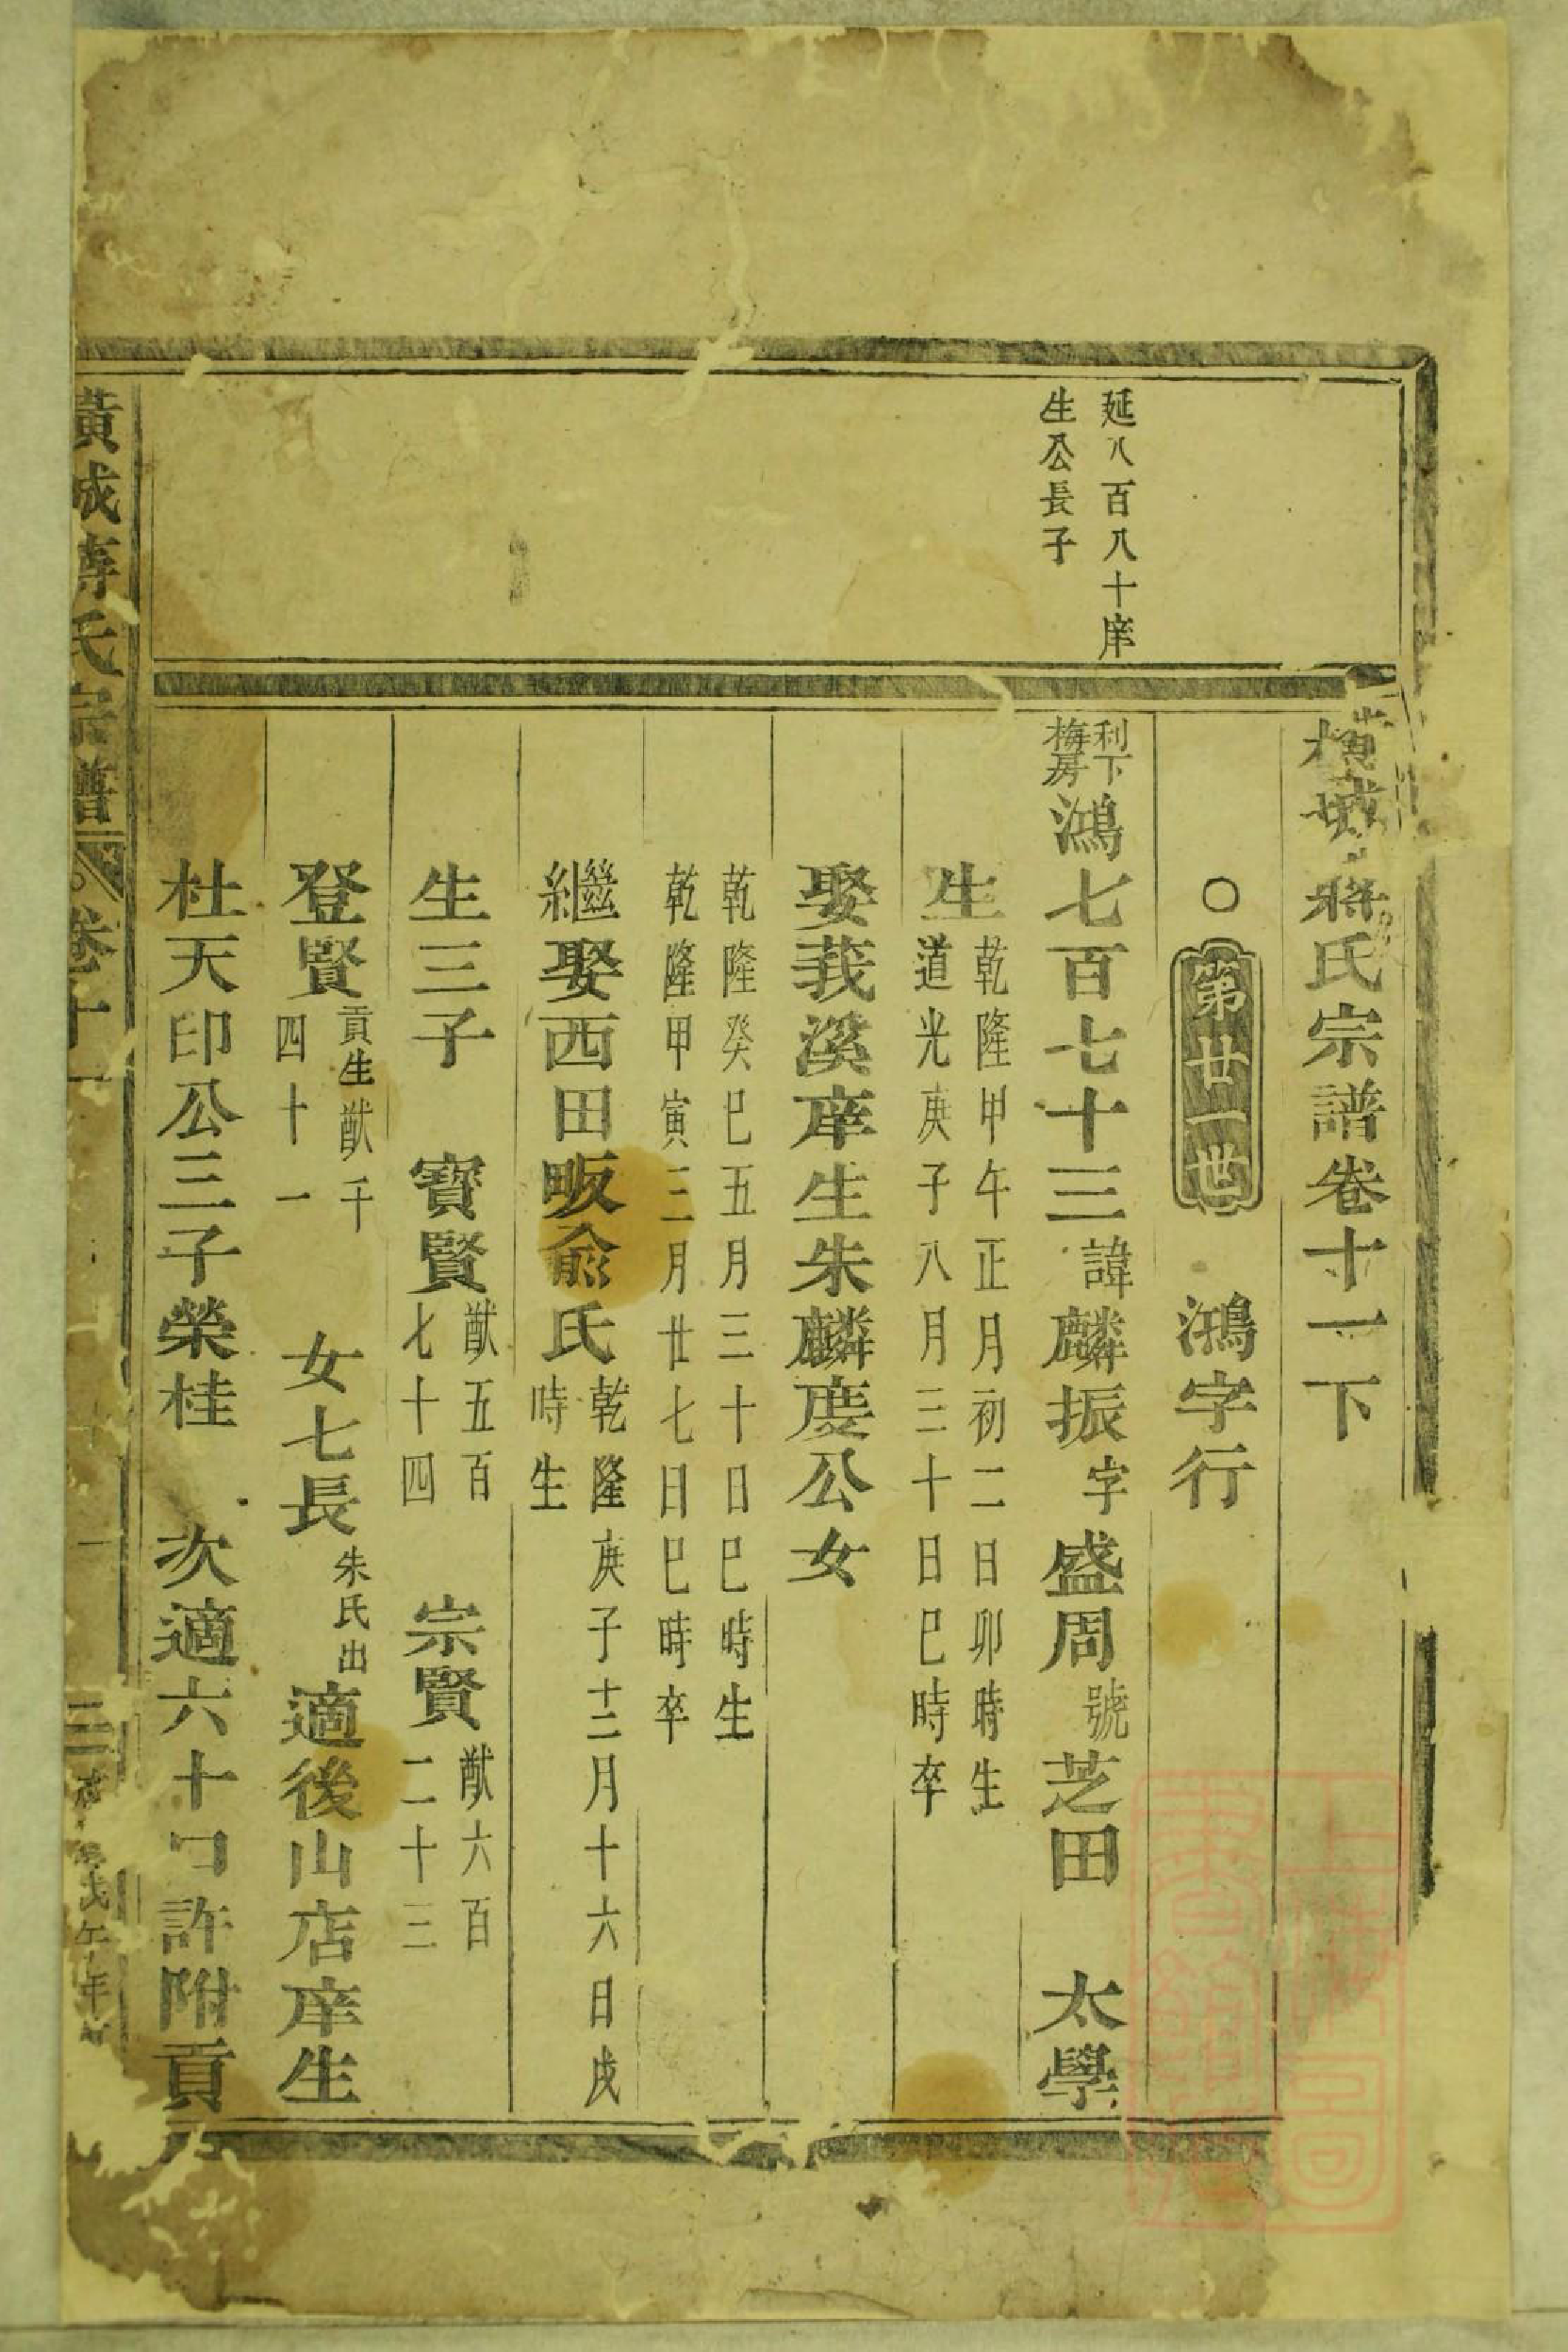 橫城蔣氏宗譜卷十一下
○第廿一世 鴻字行
延八百八十庠
生公長子
利下
梅房
鴻七百七十三諱麟振字盛周號芝田 太學
生
乾隆甲午正月初二日卯時生
道光庚子八月三十日巳時卒
娶莪溪庠生朱麟慶公女
乾隆癸巳五月三十日巳時生
乾隆甲寅三月廿七日巳時卒
繼娶西田畈俞氏
乾隆庚子十二月十六日戌
時生
生三子 寶賢
猷五百
七十四
宗賢
猷六百
二十三
登賢
貢生猷千
四十一
女七長
朱氏出
適後山店庠生
杜天印公三子榮桂 次適六十口許附貢
橫城蔣氏宗譜 卷十一
戊午年